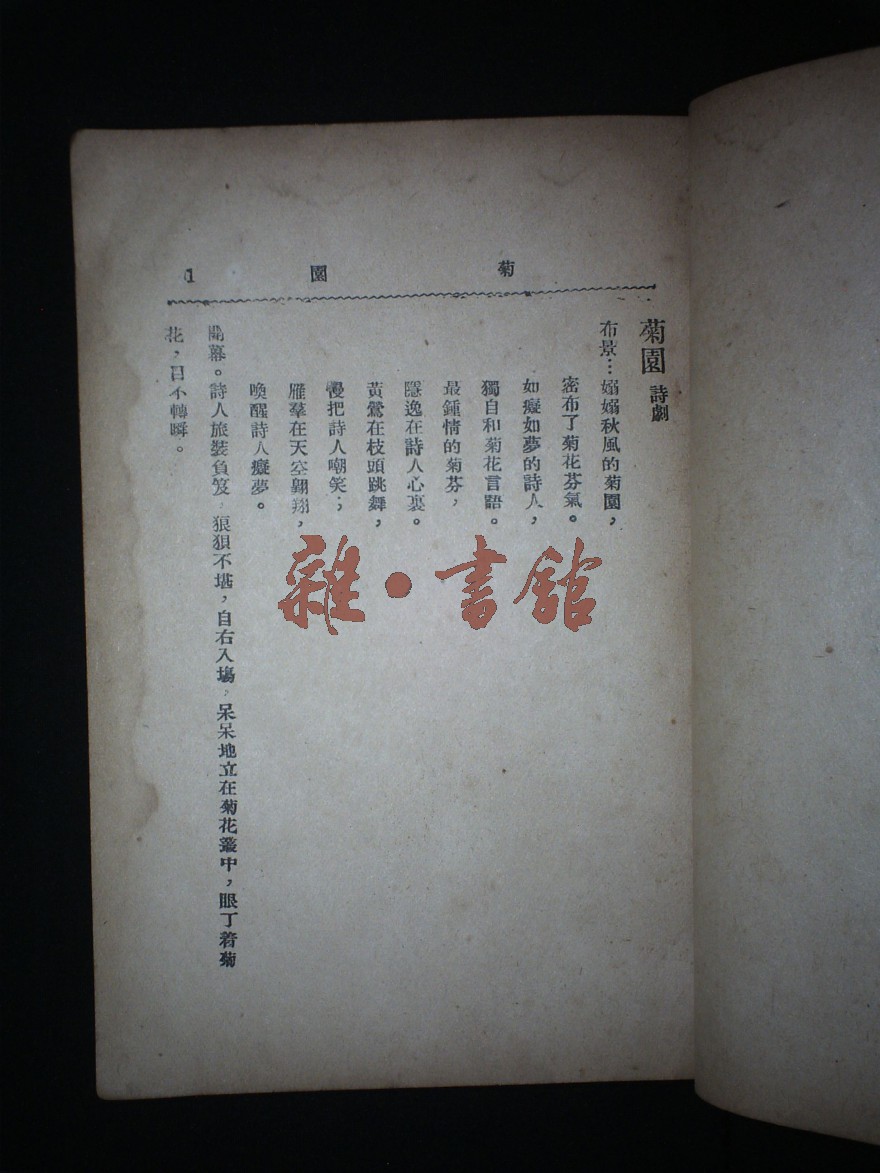 菊園 1
菊園 詩劇
布景…嫋嫋秋風的菊園，
密布了菊花芬氣。
如癡如夢的詩人，
獨自和菊花言語。
最鍾情的菊芬，
隱逸在詩人心裏。
黃鶯在枝頭跳舞，
慢把詩人嘲笑；
雁羣在天空翺翔，
喚醒詩人癡夢。
開幕。詩人旅裝負笈，狼狽不堪，自右入場，呆呆地立在菊花叢中，眼丁着菊
花，目不轉瞬。
雜•書館